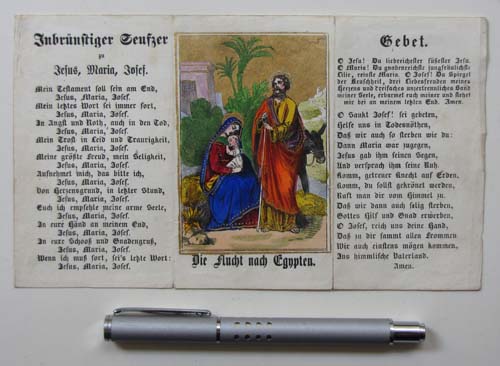 Inbrünstiger Seufzer
zu
Jesus, Maria, Josef.
Mein Testament soll sein am End,
Jesus, Maria, Josef.
Mein letztes Wort sei immer fort,
Jesus, Maria, Josef.
In Angst und Noth, auch in den Tod,
Jesus, Maria, Josef.
Mein Trost in Leid und Traurigkeit,
Jesus, Maria, Josef.
Meine größte Freud, mein Seligkeit,
Jesus, Maria, Josef.
Aufnehmet mich, das bitte ich,
Jesus, Maria, Josef.
Von Herzensgrund, in letzter Stund,
Jesus, Maria, Josef.
Euch ich empfehle meine arme Seele,
Jesus, Maria, Josef.
In eure Händ an meinem End,
Jesus, Maria, Josef.
In eure Schooß und Gnadengruß,
Jesus, Maria, Josef.
Wenn ich muß fort, sei's letzte Wort:
Jesus, Maria, Josef.
Die Flucht nach Egypten.
Gebet.
O Jesu! Du liebreichester süßester Jesu.
O Maria! Du gnadenreichste jungfräulichste
Lilie, reinste Maria. O Josef! Du Spiegel
der Keuschheit, drei Liebesfreuden meines
Herzens und dreifaches unzertrennliches Band
meiner Seele, erbarmet euch meiner und stehet
mir bei an meinem letzten End. Amen.
O Sankt Josef! sei gebeten,
Helfe uns in Todesnöthen,
Daß wir auch so sterben wie du:
Dann Maria war zugegen,
Jesus gab ihm seinen Segen,
Und versprach ihm seine Ruh.
Komm, getreuer Knecht auf Erden,
Komm, du sollst gekrönet werden,
Ruft man dir vom Himmel zu.
Daß wir dann auch selig sterben,
Gottes Hilf und Gnad erwerben,
O Josef, reich uns deine Hand,
Daß zu dir sammt allen Frommen
Wir auch einstens mögen kommen,
Ins himmlische Vaterland.
Amen.